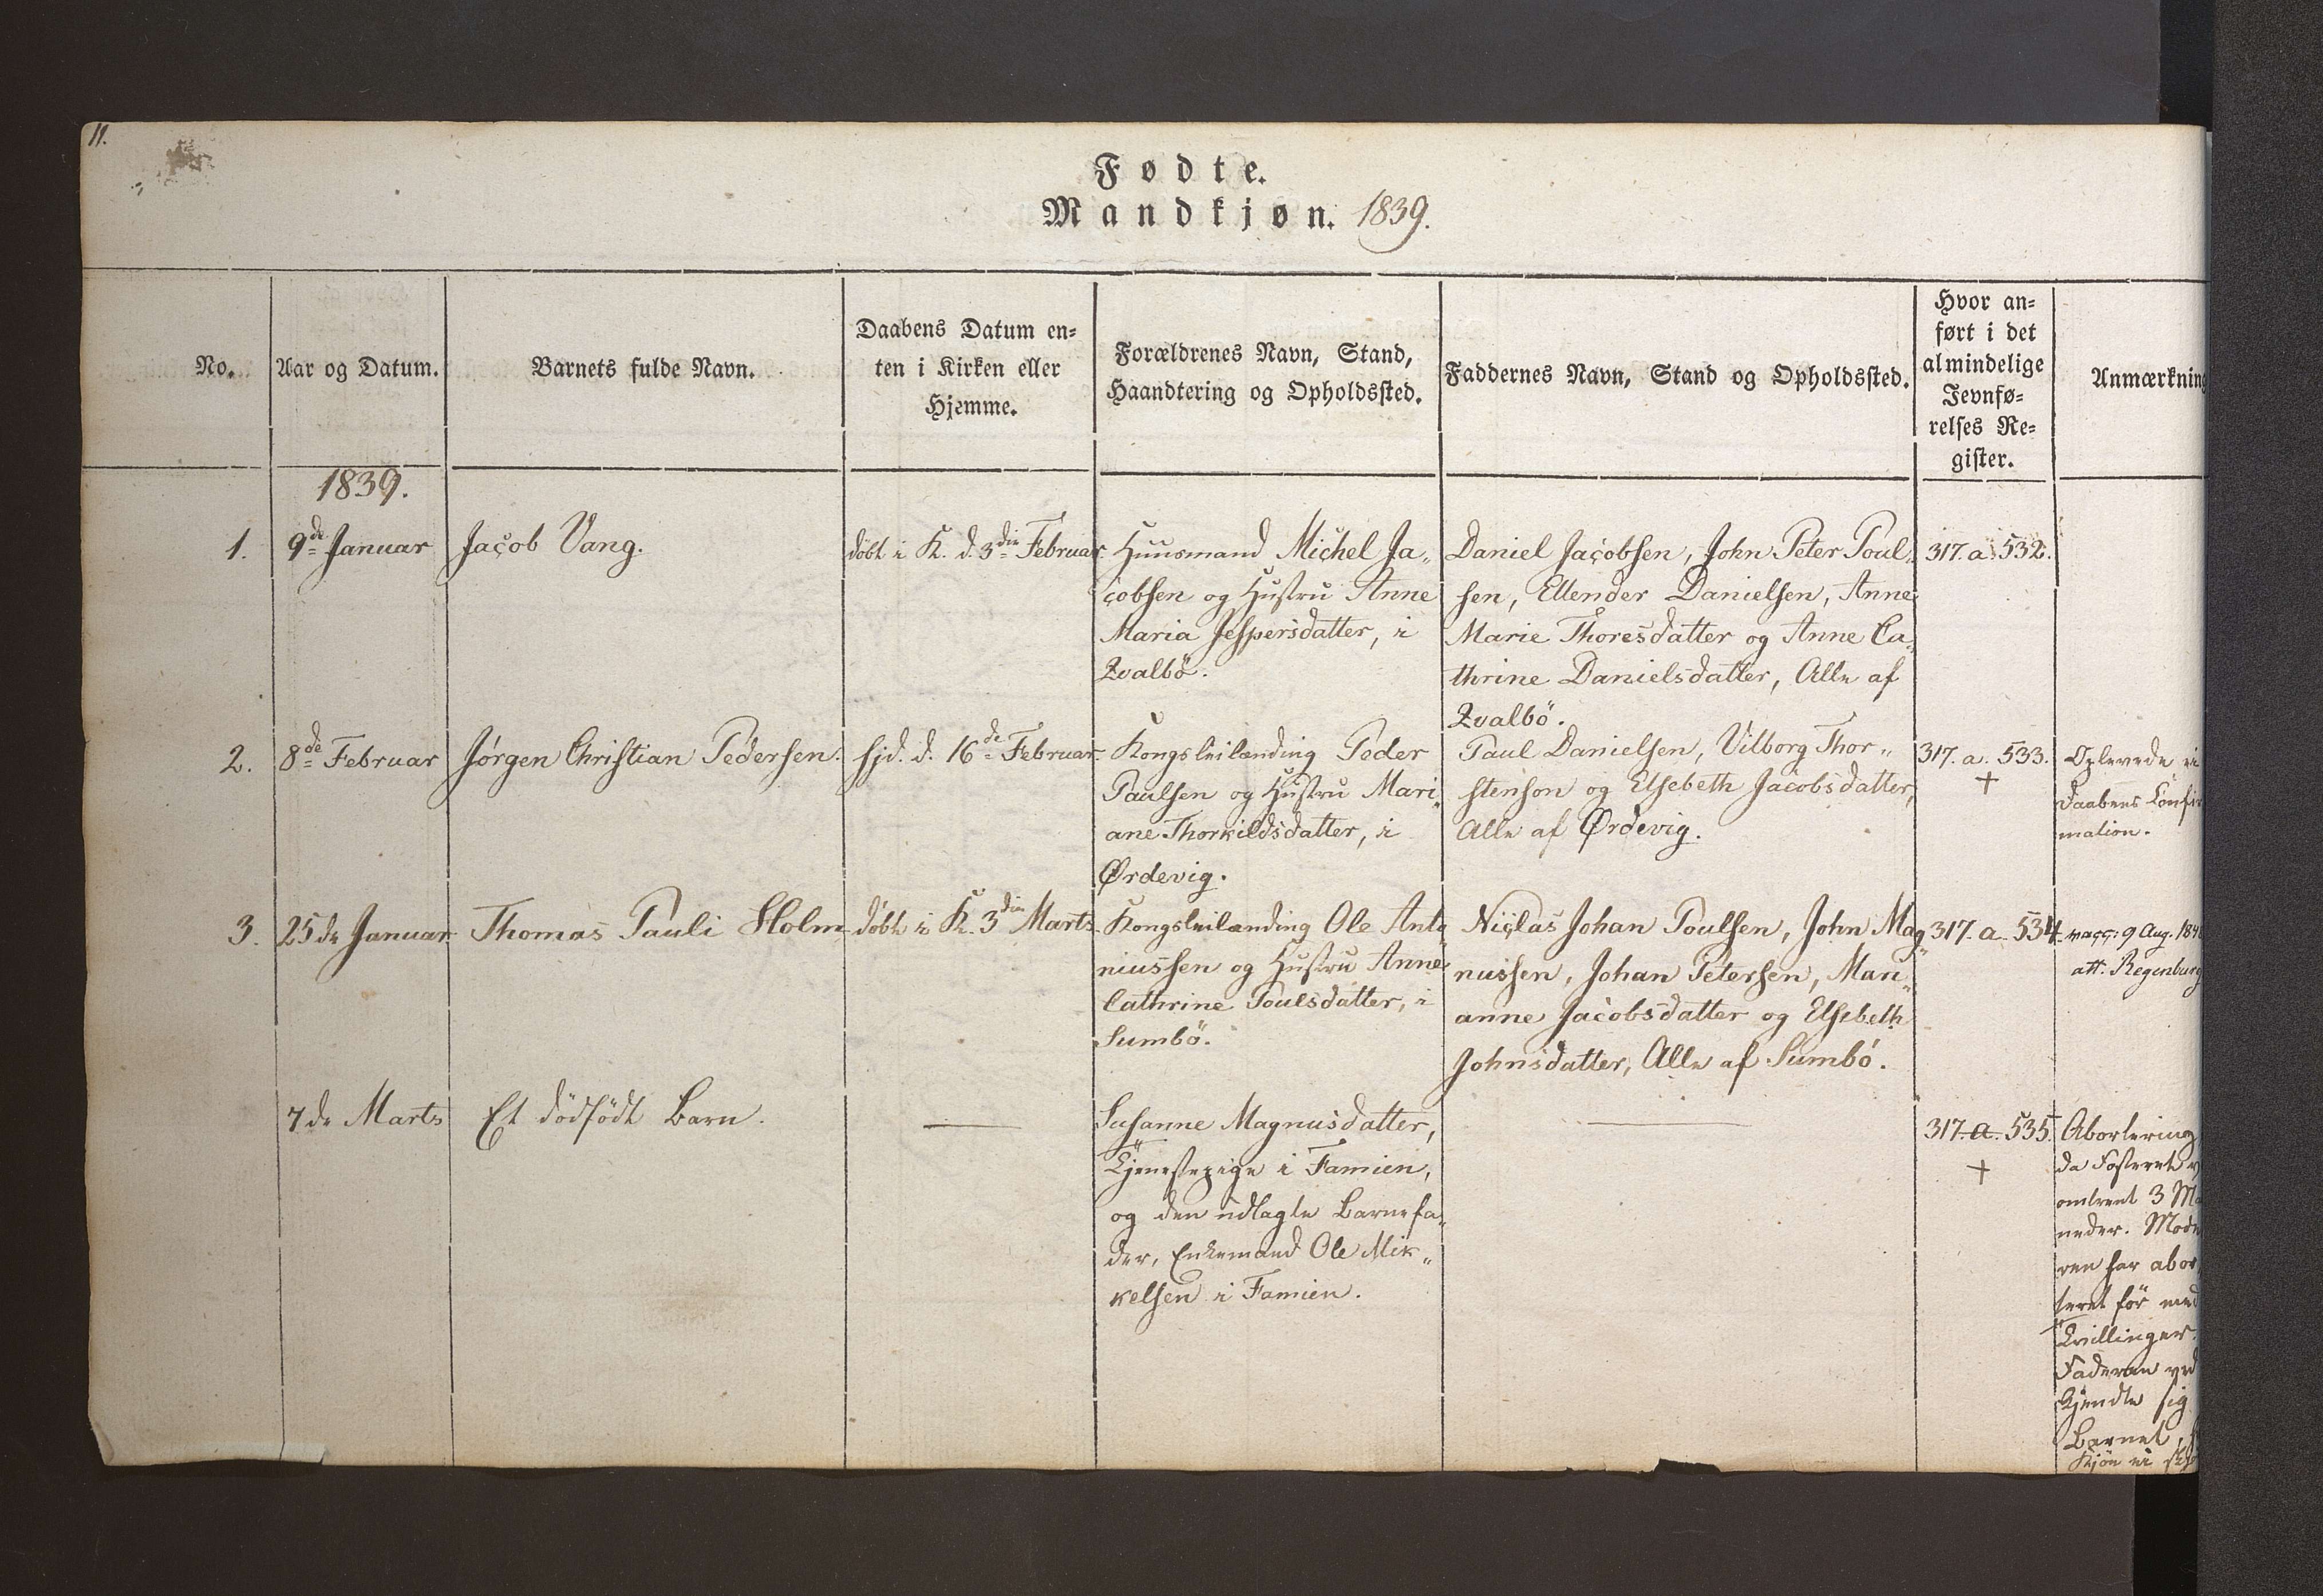 11.
Fødte.
Mandkjøn. 1839.
No.
Aar og Datum.
Barnets fulde Navn.
Daabens Datum en-
ten i Kirken eller
Hjemme.
Forældrenes Navn, Stand,
Haandtering og Opholdssted.
Faddernes Navn, Stand og Opholdssted.
Hvor an-
ført i det
almindelige
Jevnfø-
relses Re-
gister.
Anmærkning
1839.
1.
9de Januar
Jacob Vang.
döbt i K. d. 3die Februar.
Huusmand Michel Ja„
cobsen og Hustru Anne
Maria Jespersdatter, i
Qvalbö.
Daniel Jacobsen, John Peter Poul„
sen, Ellender Danielsen, Anne
Marie Thoresdatter og Anne Ca„
thrine Danielsdatter, Alle af
Qvalbö.
317. a. 532.
2.
8de Februar
Jørgen Christian Pedersen.
hjd. d. 16de Februar.
Kongsleilænding Peder
Paulsen og Hustru Mari„
ane Thorkildsdatter, i
Ørdevig.
Paul Danielsen, Vilborg Thor„
stenson og Elsebeth Jacobsdatter,
Alle af Ørdevig.
317. a. 533.
+
Oplevede ei
Daabens Confir
mation.
3.
25de Januar
Thomas Pauli Holm
döbt i K. 3die Marts.
Kongsleilænding Ole Anto
niussen og Hustru Anne
Cathrine Poulsdatter, i
Sumbö.
Niclas Johan Poulsen, John Mag„
nussen, Johan Petersen, Mari„
anne Jacobsdatter og Elsebeth
Johnsdatter, Alle af Sumbö.
317. a. 534.
vacc: 9 Aug. 184
att. Regenburg
7de Marts
Et dödfödt Barn.
Susanne Magnusdatter,
Tjenestepige i Famien,
og den udlagte Barnefa„
der, Enkemand Ole Mik„
kelsen i Famien.
317. a. 535.
+
Abortering
da Fosteret v
omtrent 3 Ma
neder. Mode
ren har abor
teret för med
Tvillinger.
Faderen ved
kjendte sig
Barnet,
Kjön ei